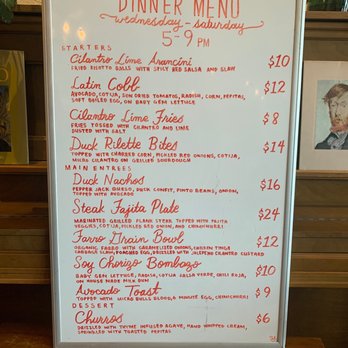 DINNER MENU
wednesday - saturday
5-9 PM
STARTERS
Cilantro Lime Arancini $10
FRIED RISOTTO BALLS WITH SPICY RED SALSA AND SLAW
Latin Cobb $12
AVOCADO, COTIJA, SUN DRIED TOMATO, RADISH, CORN, PEPITAS,
SOFT BOILED EGG, ON BABY GEM LETTUCE
Cilantro Lime Fries $8
FRIES TOSSED WITH CILANTRO AND LIME
DUSTED WITH SALT
Duck Rilette Bites $14
TOPPED WITH CHARRED CORN, PICKLED RED ONIONS, COTIJA,
MICRO CILANTRO ON GRILLED SOURDOUGH
MAIN ENTREES
Duck Nachos $16
PEPPER JACK QUESO, DUCK CONFIT, PINTO BEANS, ONION,
TOPPED WITH AVOCADO
Steak Fajita Plate $24
MARINATED GRILLED FLANK STEAK TOPPED WITH FAJITA
VEGGIES, COTIJA, PICKLED RED ONION, AND CHIMICHURRI
Farro Grain Bowl $12
ORGANIC FARRO WITH CARAMELIZED ONIONS, CHICKEN THIGH
CABBAGE SLAW, POACHED EGG, DRIZZLED WITH JALAPENO CILANTRO CUSTARD
Soy Chorizo Bombazo $10
BABY GEM LETTUCE, RADISH, COTIJA SALSA VERDE, CHILI ROJA,
ON HOUSE MADE MILK BUN
Avocado Toast $9
TOPPED WITH MICRO BULLS BLOOD, 6 MINUTE EGG, CHIMICHURRI
DESSERT
Churros $6
DRIZZLED WITH THYME INFUSED AGAVE, HAND WHIPPED CREAM,
SPRINKLED WITH TOASTED PEPITAS